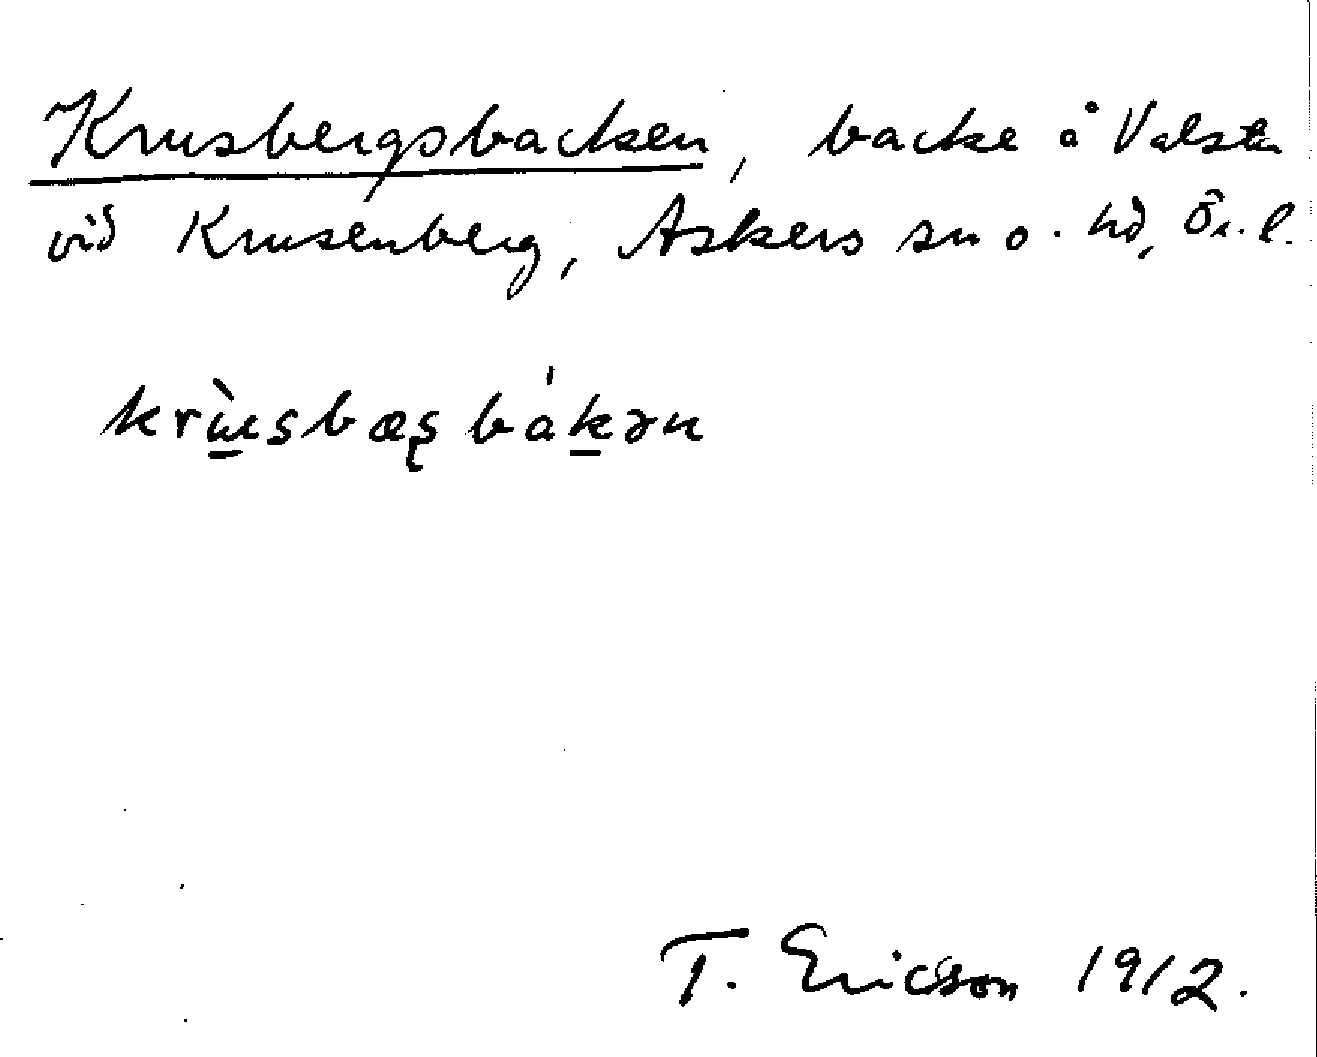 Krusbergsbacken, backe å Valsta
vid Krusenberg, Askers sn o. hd, Ör. l.
krùsbæʂbákən
T. Ericson 1912.